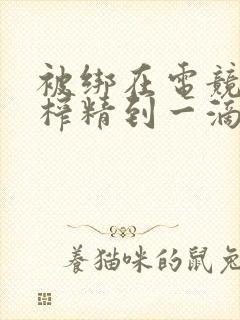 被绑在电竞
榨精到一滴
养猫咪的鼠兔